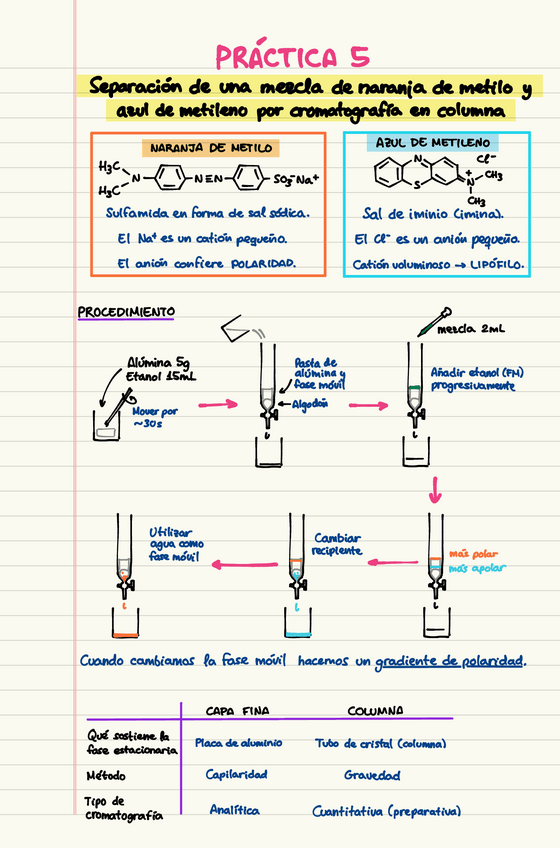 PRÁCTICA 5
Separación de una mezcla de naranja de metilo y
azul de metileno por cromatografía en columna
NARANJA DE METILO
H₃C
H₃C
N
N=N
SO₃⁻Na⁺
Sulfamida en forma de sal sódica.
El Na⁺ es un catión pequeño.
El anión confiere POLARIDAD.
AZUL DE METILENO
N
S
Cl⁻
N⁺
CH₃
CH₃
Sal de iminio (imina).
El Cl⁻ es un anión pequeño.
Catión voluminoso → LIPÓFILO.
PROCEDIMIENTO
Alúmina 5g
Etanol 15mL
Mover por
~30s
Pasta de
alúmina y
fase móvil
Algodón
mezcla 2mL
Añadir etanol (FM)
progresivamente
más polar
más apolar
Cambiar
recipiente
Utilizar
agua como
fase móvil
Cuando cambiamos la fase móvil hacemos un gradiente de polaridad.
CAPA FINA COLUMNA
Qué sostiene la
fase estacionaria Placa de aluminio Tubo de cristal (columna)
Método Capilaridad Gravedad
Tipo de
cromatografía Analítica Cuantitativa (preparativa)